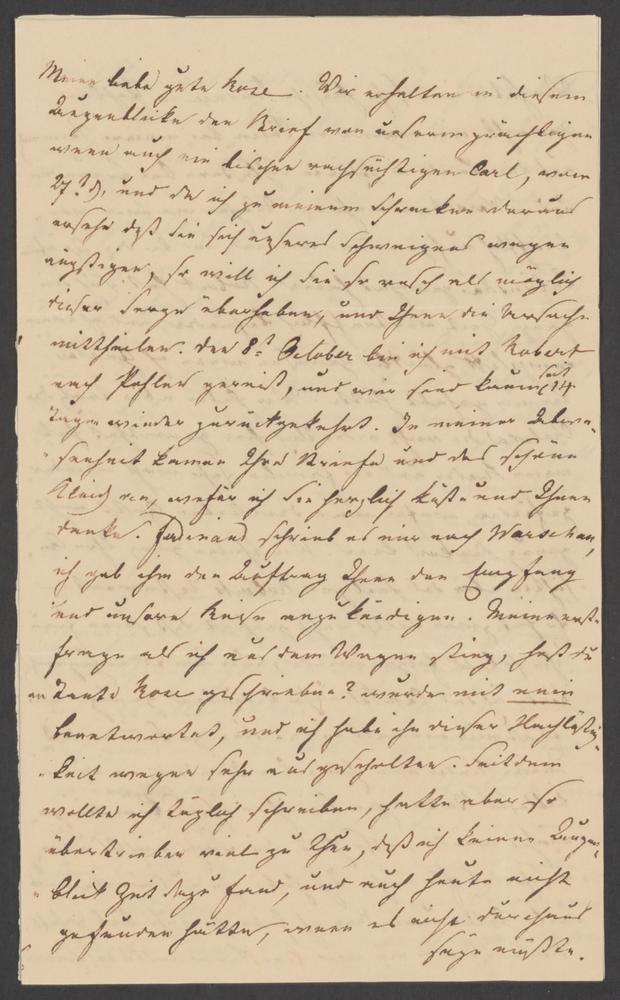 Meine liebe gute Rose. Wir erhalten in diesem
Augenblicke den Brief von unserm prächtigen
wenn auch ein bischen rachsüchtigen Carl, vom
27t. d, und da ich zu meinem Schrecken daraus
ersehe daß Sie sich unseres Schweigens wegen
ängstigen, so will ich Sie so rasch als möglich
dieser Sorge überheben, und Ihnen die Ursache
mittheilen. den 8t. October bin ich mit Robert
nach Pohlen gereist, und wir sind kaum seit 14
Tagen wieder zurückgekehrt. In meiner Abwe-
senheit kamen Ihre Briefe und das schöne
Kleid an, wofür ich Sie herzlich küße und Ihnen
danke. Ferdinand schrieb es mir nach Warschau,
ich gab ihm den Auftrag Ihnen den Empfang
und unsere Reise anzukündigen. Meine erste
Frage als ich aus dem Wagen stieg, hast du
an Tante Rose geschrieben? wurde mit nein
beantwortet, und ich habe ihn dieser Nachläßig-
keit wegen sehr ausgescholten. Seitdem
wollte ich täglich schreiben, hatte aber so
übertrieben viel zu thun, daß ich keinen Augen-
blick Zeit dazu fand, und auch heute nicht
gefunden hätte, wenn es nicht durchaus
seyn müßte.